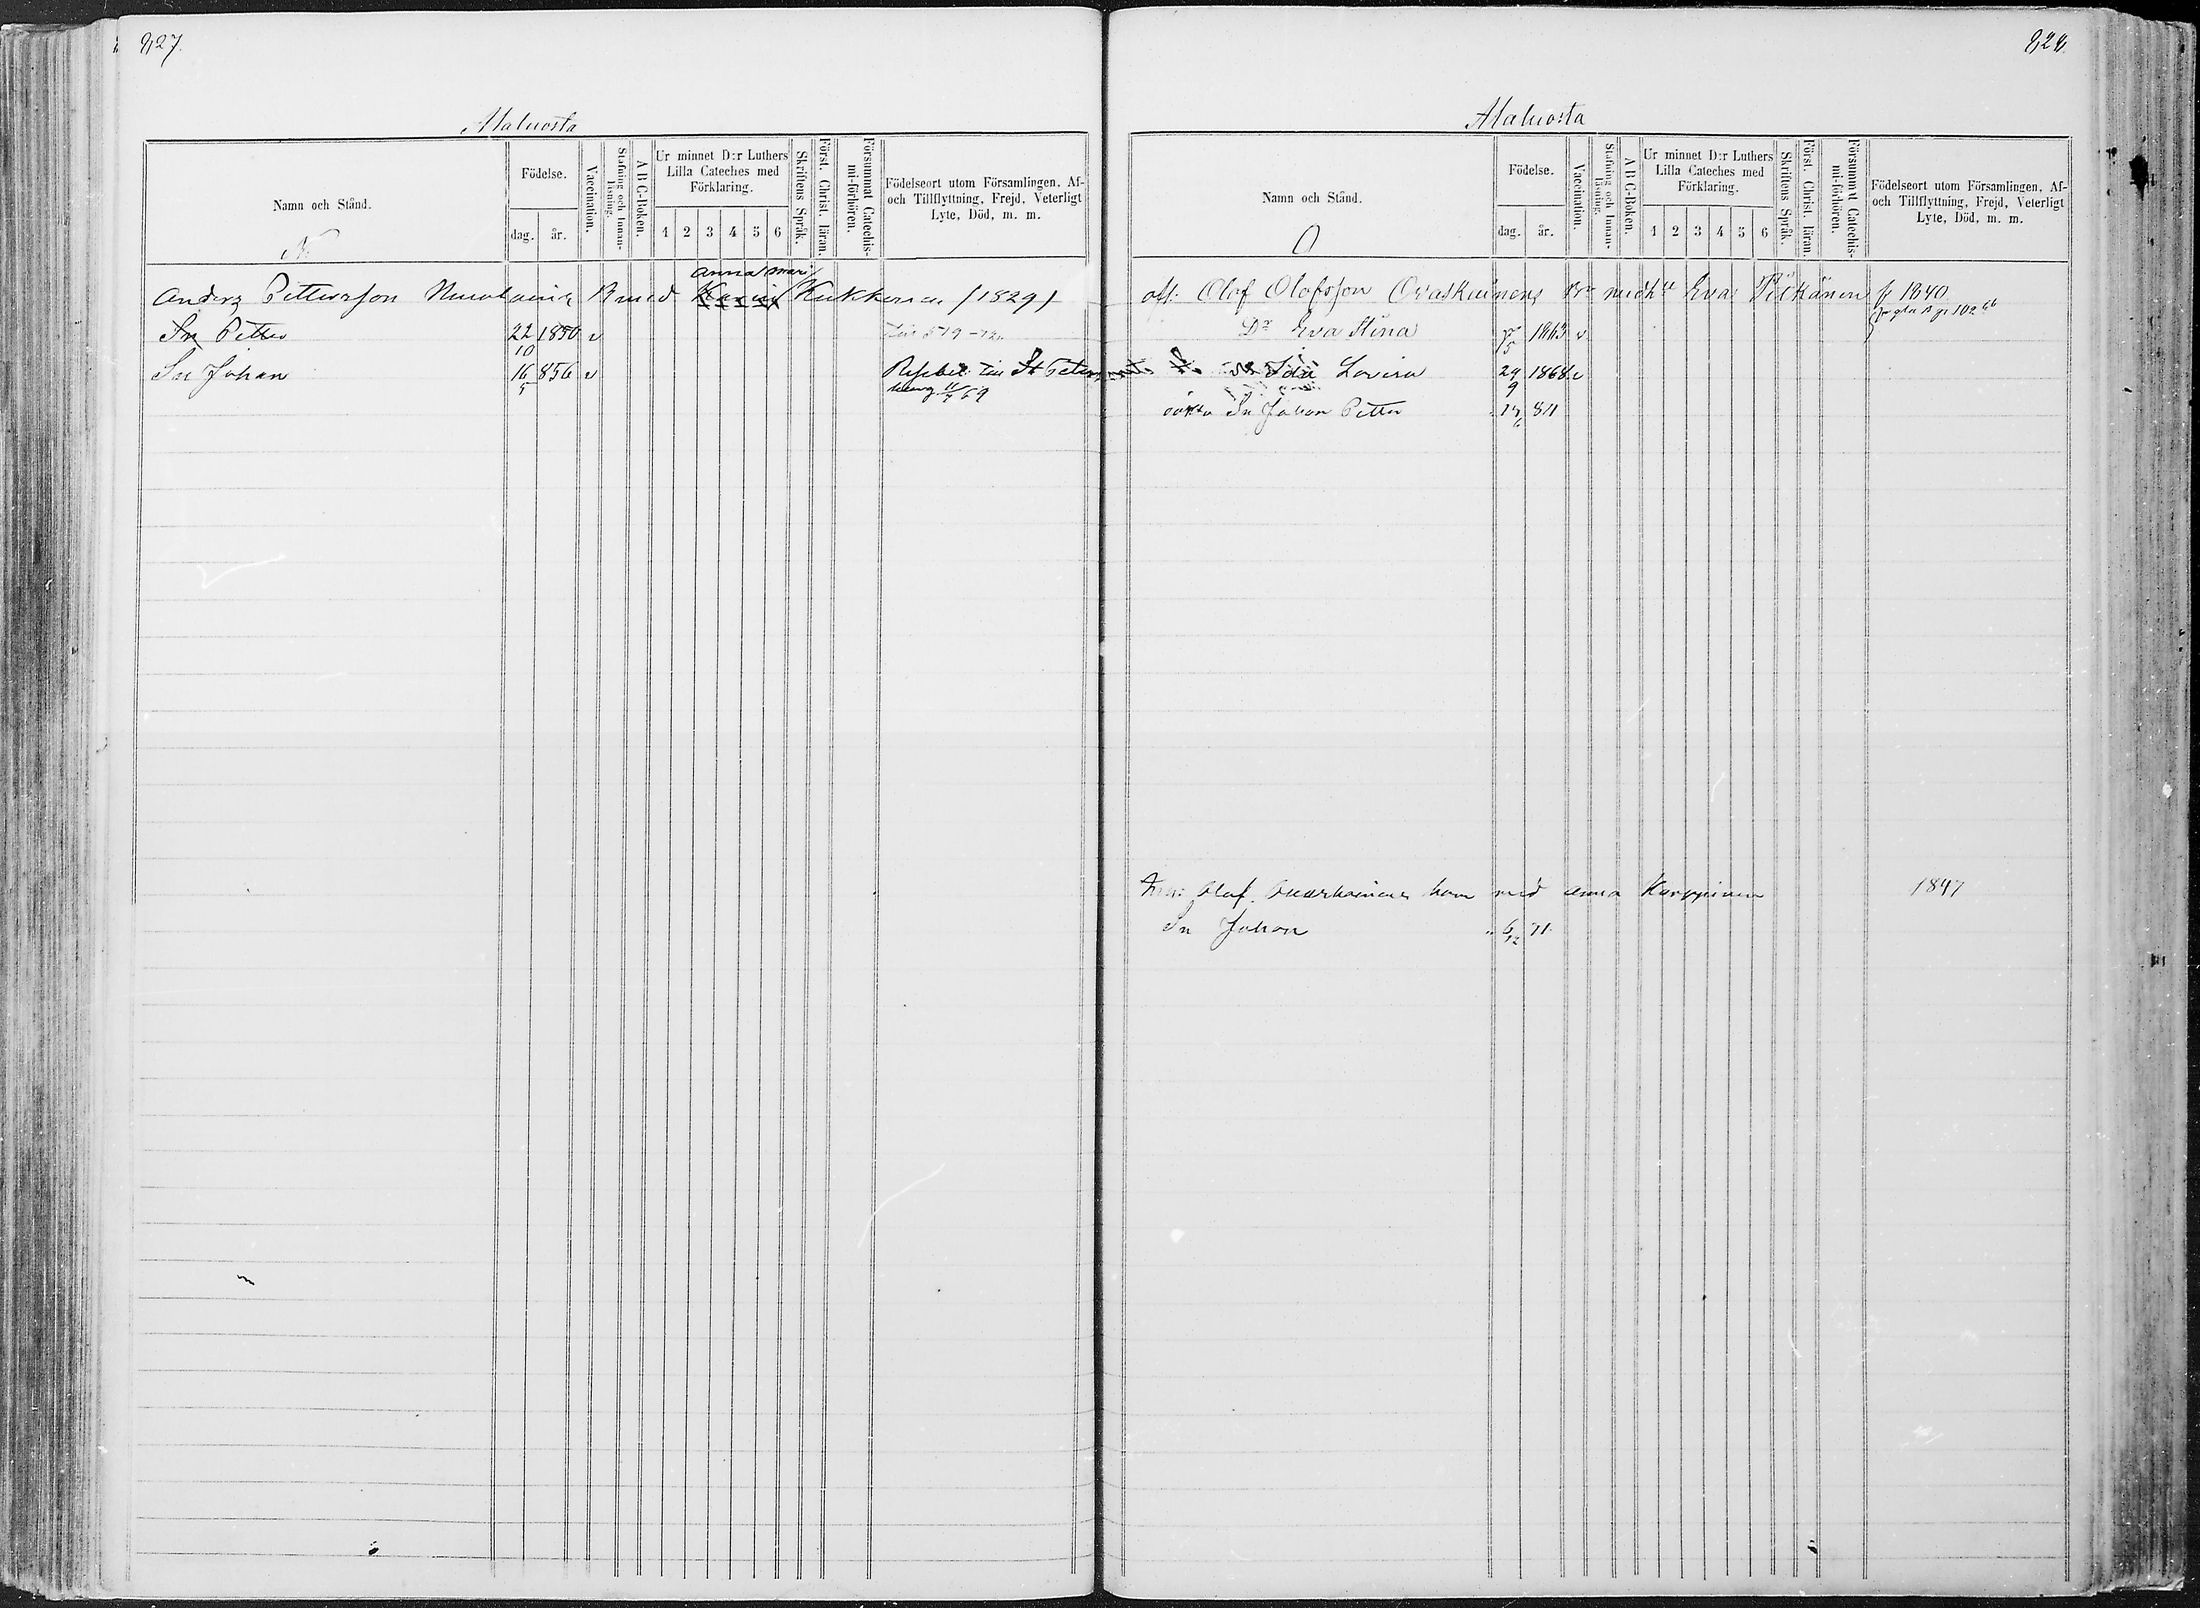 827.
Alaluosta
Namn och Stånd.
Födelse.
dag.
år.
Vaccination.
Stafning och Innan-
läsning.
A B C-Boken.
Ur minnet D:r Luthers
Lilla Cateches med
Förklaring.
1 2 3 4 5 6
Skriftens Språk.
Först. Christ. läran.
Försummat Catechis-
mi-förhören.
Födelseort utom Församlingen, Af-
och Tillflyttning, Frejd, Veterligt
Lyte, Död, m. m.
N
Anna Mari
Anders Pettersson med Karin Kukkonen (1829)
Sn Petter 22/10 1850 v
Sn Johan 16/5 856 v till St Peters
11/7 69
828.
Alaluosta
Namn och Stånd.
Födelse.
dag.
år.
Vaccination.
Stafning och Innan-
läsning.
A B C-Boken.
Ur minnet D:r Luthers
Lilla Cateches med
Förklaring.
1 2 3 4 5 6
Skriftens Språk.
Först. Christ. läran.
Försummat Catechis-
mi-förhören.
Födelseort utom Församlingen, Af-
och Tillflyttning, Frejd, Veterligt
Lyte, Död, m. m.
O
Olof Olofsson Ovaskainens med Eva Pitkänen f 1840
Dr Eva Stina 1863 v
Ida Lovisa 29/9 1868 v
Sn Johan Petter
Olof med Anna Karppinen 1847
Sn Johan 6/12 71